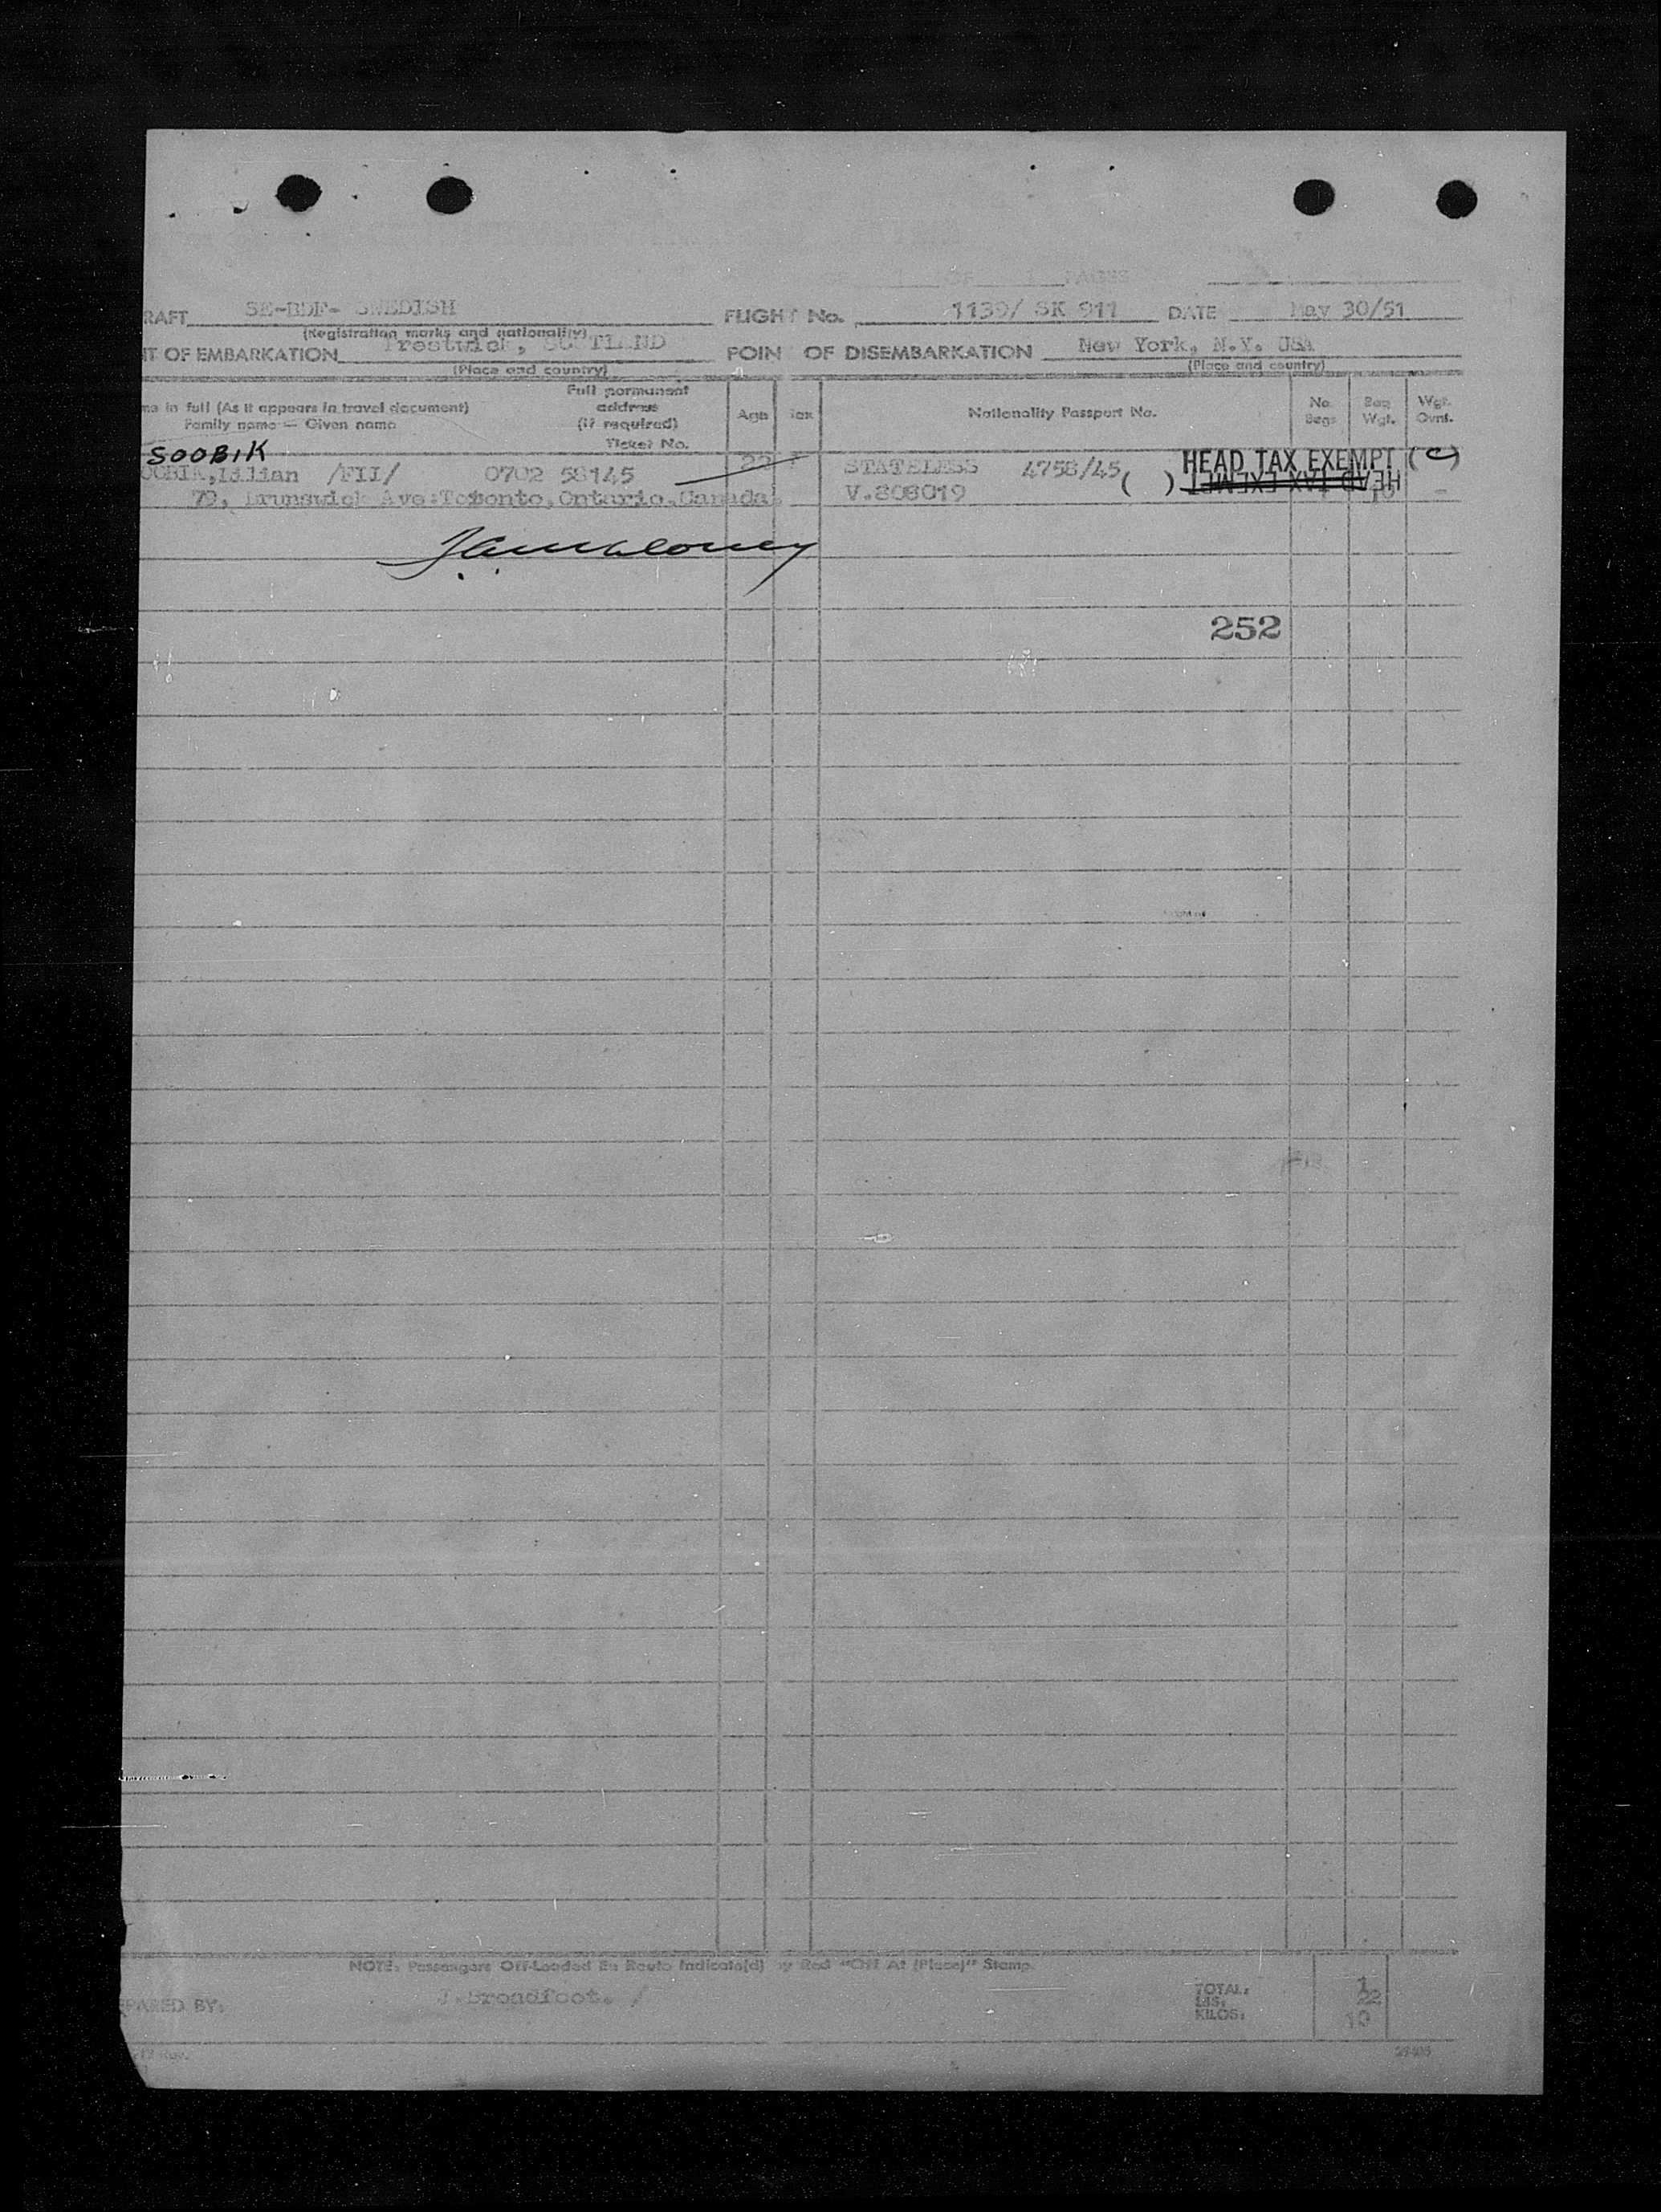 1 OF 1 PAGES
RAFT SE-BDF- SWEDISH FLIGHT No. 1139/ SK 911 DATE May 30/51
(Registration marks and nationality)
T OF EMBARKATION Prestwick, SCOTLAND POIN OF DISEMBARKATION New York, N.Y. USA
(Place and country) (Place and country)
me in full (As it appears in travel document) Family name — Given name Full permanent address (if required) Ticket No. Age Sex Nationality Passport No. No. Bags Bag Wgt. Wgt. Ovnt.
SOOBIK
OOBIK, Lilian /FII/ 0702 58145 22 F STATELESS 4758/45 HEAD TAX EXEMPT (C)
79, Brunswick Ave:Toronto,Ontario,Canada. V.808019 ( ) HEAD TAX EXEMPT 10 -
252
NOTE: Passengers Off-Loaded En Route Indicate(d) by Red "Off At (Place)" Stamp.
PARED BY: J.Broadfoot. /
TOTAL: 1
LBS: 22
KILOS: 10
Rev.